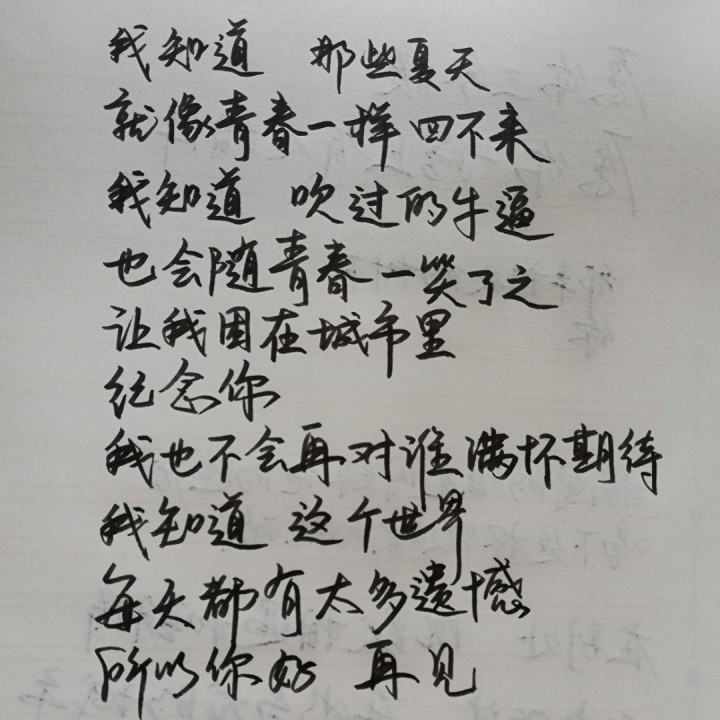 我知道 那些夏天
就像青春一样回不来
我知道 吹过的牛逼
也会随青春一笑了之
让我困在城市里
纪念你
我也不会再对谁满怀期待
我知道 这个世界
每天都有太多遗憾
所以你好 再见